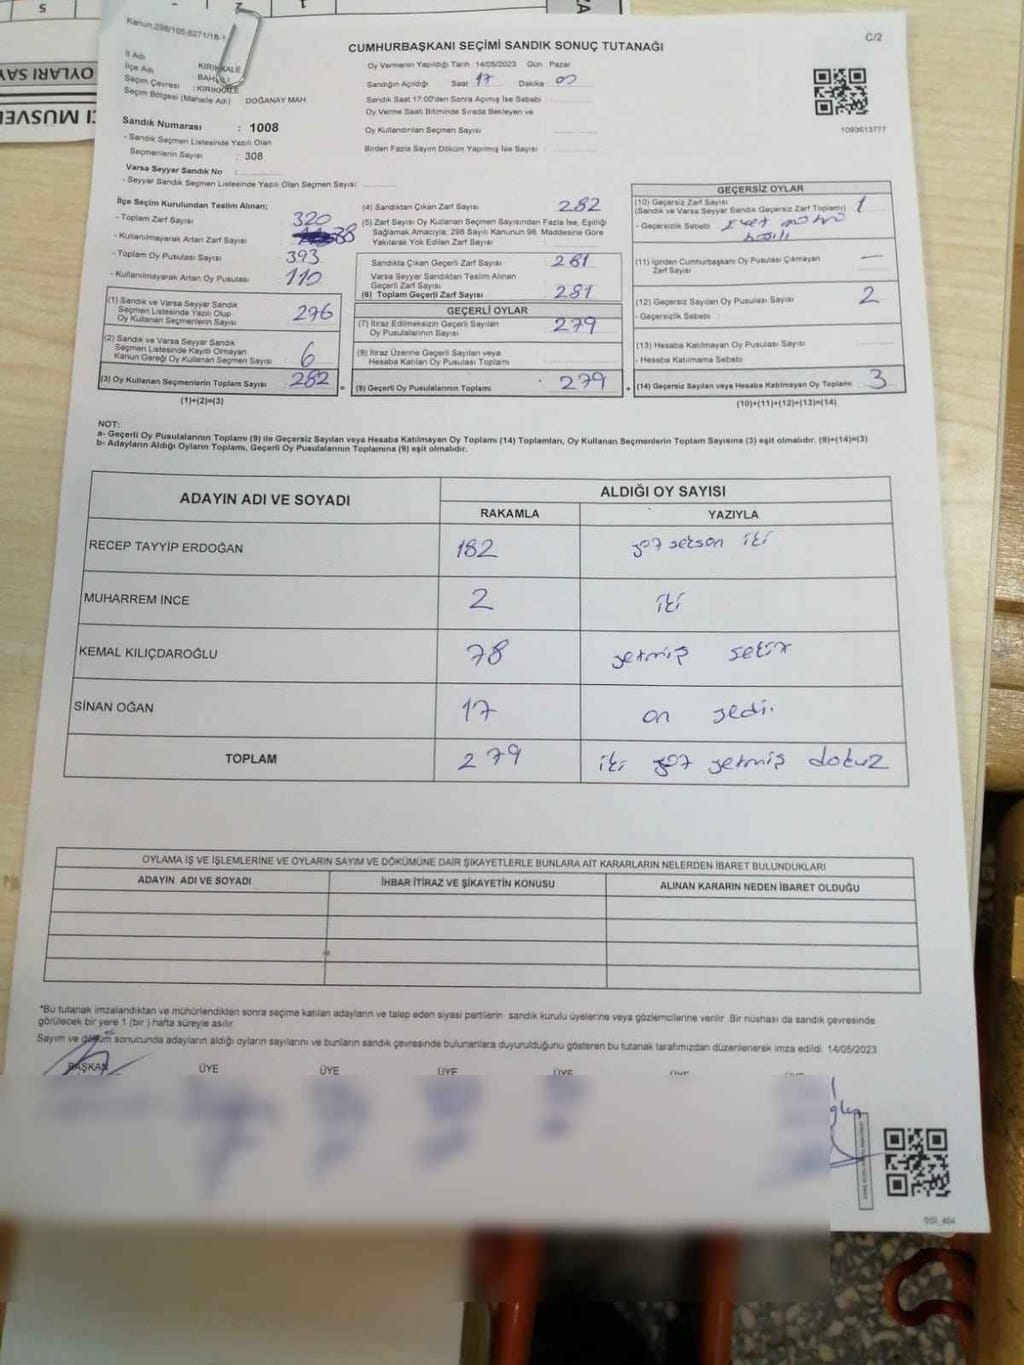 5
1
OYLARI SAY
Kanun,298/105-6271/18-1
C/2
CUMHURBAŞKANI SEÇİMİ SANDIK SONUÇ TUTANAĞI
İl Adı KIRIKKALE
İlçe Adı BAHŞILI
Seçim Çevresi : KIRIKKALE
Seçim Bölgesi (Mahalle Adı) DOĞANAY MAH
Oy Vermenin Yapıldığı Tarih 14/05/2023 Gün Pazar
Sandığın Açıldığı Saat 17 Dakika 00
Sandık Saat 17:00'den Sonra Açılmış İse Sebebi
Oy Verme Saati Bitiminde Sırada Bekleyen ve
Oy Kullandırılan Seçmen Sayısı
Birden Fazla Sayım Döküm Yapılmış İse Sayısı
1093613777
Sandık Numarası : 1008
- Sandık Seçmen Listesinde Yazılı Olan
Seçmenlerin Sayısı : 308
Varsa Seyyar Sandık No :
- Seyyar Sandık Seçmen Listesinde Yazılı Olan Seçmen Sayısı:
İlçe Seçim Kurulundan Teslim Alınan;
- Toplam Zarf Sayısı 320
- Kullanılmayarak Artan Zarf Sayısı 38
- Toplam Oy Pusulası Sayısı 393
- Kullanılmayarak Artan Oy Pusulası 110
(1) Sandık ve Varsa Seyyar Sandık
Seçmen Listesinde Yazılı Olup
Oy Kullanan Seçmenlerin Sayısı 276
(2) Sandık ve Varsa Seyyar Sandık
Seçmen Listesinde Kayıtlı Olmayan
Kanun Gereği Oy Kullanan Seçmen Sayısı 6
(3) Oy Kullanan Seçmenlerin Toplam Sayısı 282
(1)+(2)=(3)
(4) Sandıktan Çıkan Zarf Sayısı 282
(5) Zarf Sayısı Oy Kullanan Seçmen Sayısından Fazla İse, Eşitliği
Sağlamak Amacıyla; 298 Sayılı Kanunun 98. Maddesine Göre
Yakılarak Yok Edilen Zarf Sayısı
Sandıkta Çıkan Geçerli Zarf Sayısı 281
Varsa Seyyar Sandıktan Teslim Alınan
Geçerli Zarf Sayısı
(6) Toplam Geçerli Zarf Sayısı 281
GEÇERLİ OYLAR
(7) İtiraz Edilmeksizin Geçerli Sayılan
Oy Pusulalarının Sayısı 279
(8) İtiraz Üzerine Geçerli Sayılan veya
Hesaba Katılan Oy Pusulası Toplamı
= (9) Geçerli Oy Pusulalarının Toplamı 279 +
GEÇERSİZ OYLAR
(10) Geçersiz Zarf Sayısı
(Sandık ve Varsa Seyyar Sandık Geçersiz Zarf Toplamı) 1
- Geçersizlik Sebebi : Evet mührü
basılı
(11) İçinden Cumhurbaşkanı Oy Pusulası Çıkmayan
Zarf Sayısı —
(12) Geçersiz Sayılan Oy Pusulası Sayısı 2
- Geçersizlik Sebebi :
(13) Hesaba Katılmayan Oy Pusulası Sayısı
- Hesaba Katılmama Sebebi
(14) Geçersiz Sayılan veya Hesaba Katılmayan Oy Toplamı 3
(10)+(11)+(12)+(13)=(14)
NOT:
a- Geçerli Oy Pusulalarının Toplamı (9) ile Geçersiz Sayılan veya Hesaba Katılmayan Oy Toplamı (14) Toplamları, Oy Kullanan Seçmenlerin Toplam Sayısına (3) eşit olmalıdır. (9)+(14)=(3)
b- Adayların Aldığı Oyların Toplamı, Geçerli Oy Pusulalarının Toplamına (9) eşit olmalıdır.
ADAYIN ADI VE SOYADI
ALDIĞI OY SAYISI
RAKAMLA YAZIYLA
RECEP TAYYİP ERDOĞAN 182 yüz seksen iki
MUHARREM İNCE 2 iki
KEMAL KILIÇDAROĞLU 78 yetmiş sekiz
SİNAN OĞAN 17 on yedi.
TOPLAM 279 iki yüz yetmiş dokuz
OYLAMA İŞ VE İŞLEMLERİNE VE OYLARIN SAYIM VE DÖKÜMÜNE DAİR ŞİKAYETLERLE BUNLARA AİT KARARLARIN NELERDEN İBARET BULUNDUKLARI
ADAYIN ADI VE SOYADI İHBAR İTİRAZ VE ŞİKAYETİN KONUSU ALINAN KARARIN NEDEN İBARET OLDUĞU
*Bu tutanak imzalandıktan ve mühürlendikten sonra seçime katılan adayların ve talep eden siyasi partilerin sandık kurulu üyelerine veya gözlemcilerine verilir. Bir nüshası da sandık çevresinde
görülecek bir yere 1 (bir ) hafta süreyle asılır.
Sayım ve döküm sonucunda adayların aldığı oyların sayılarını ve bunların sandık çevresinde bulunanlara duyurulduğunu gösteren bu tutanak tarafımızdan düzenlenerek imza edildi. 14/05/2023
BAŞKAN ÜYE ÜYE ÜYE ÜYE